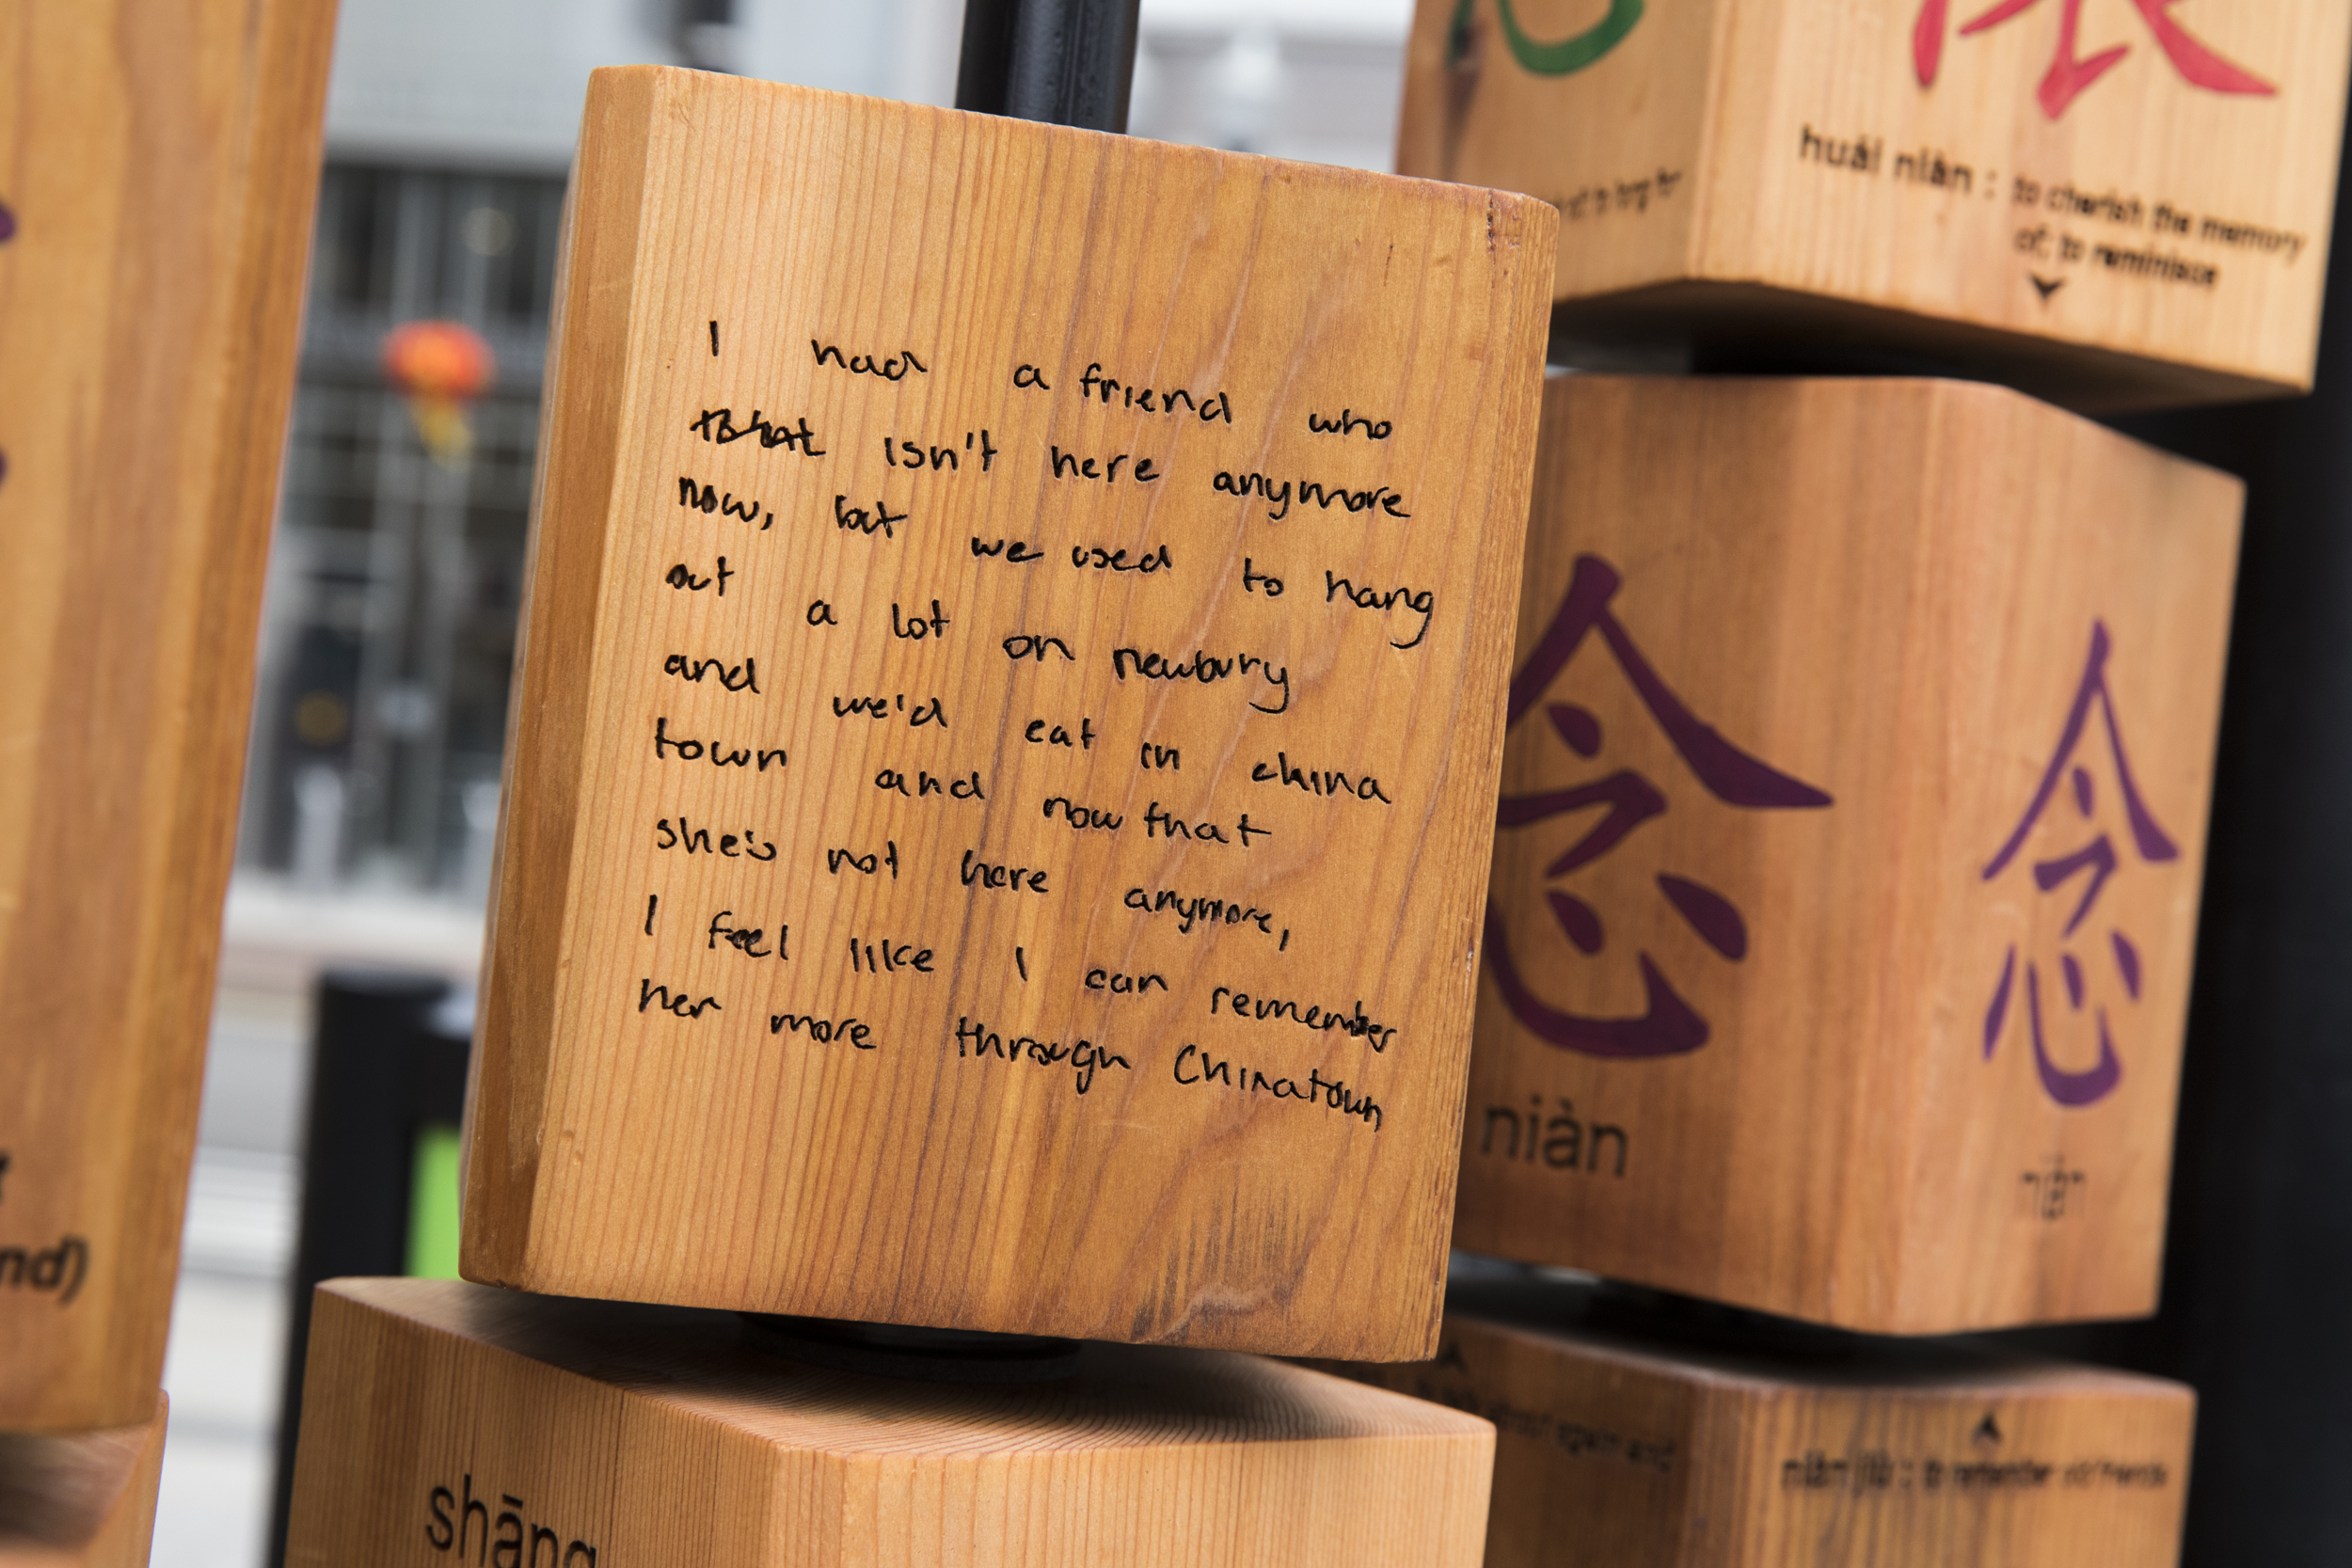 I had a friend who
isn't here anymore
now, but we used to hang
out a lot on newbury
and we'd eat in china
town and now that
she's not here anymore,
I feel like I can remember
her more through Chinatown
huái niàn : to cherish the memory
of; to reminisce
to long for
念
niàn
念
niàn
niàn jiù : to remember old friends
shāng
nd)